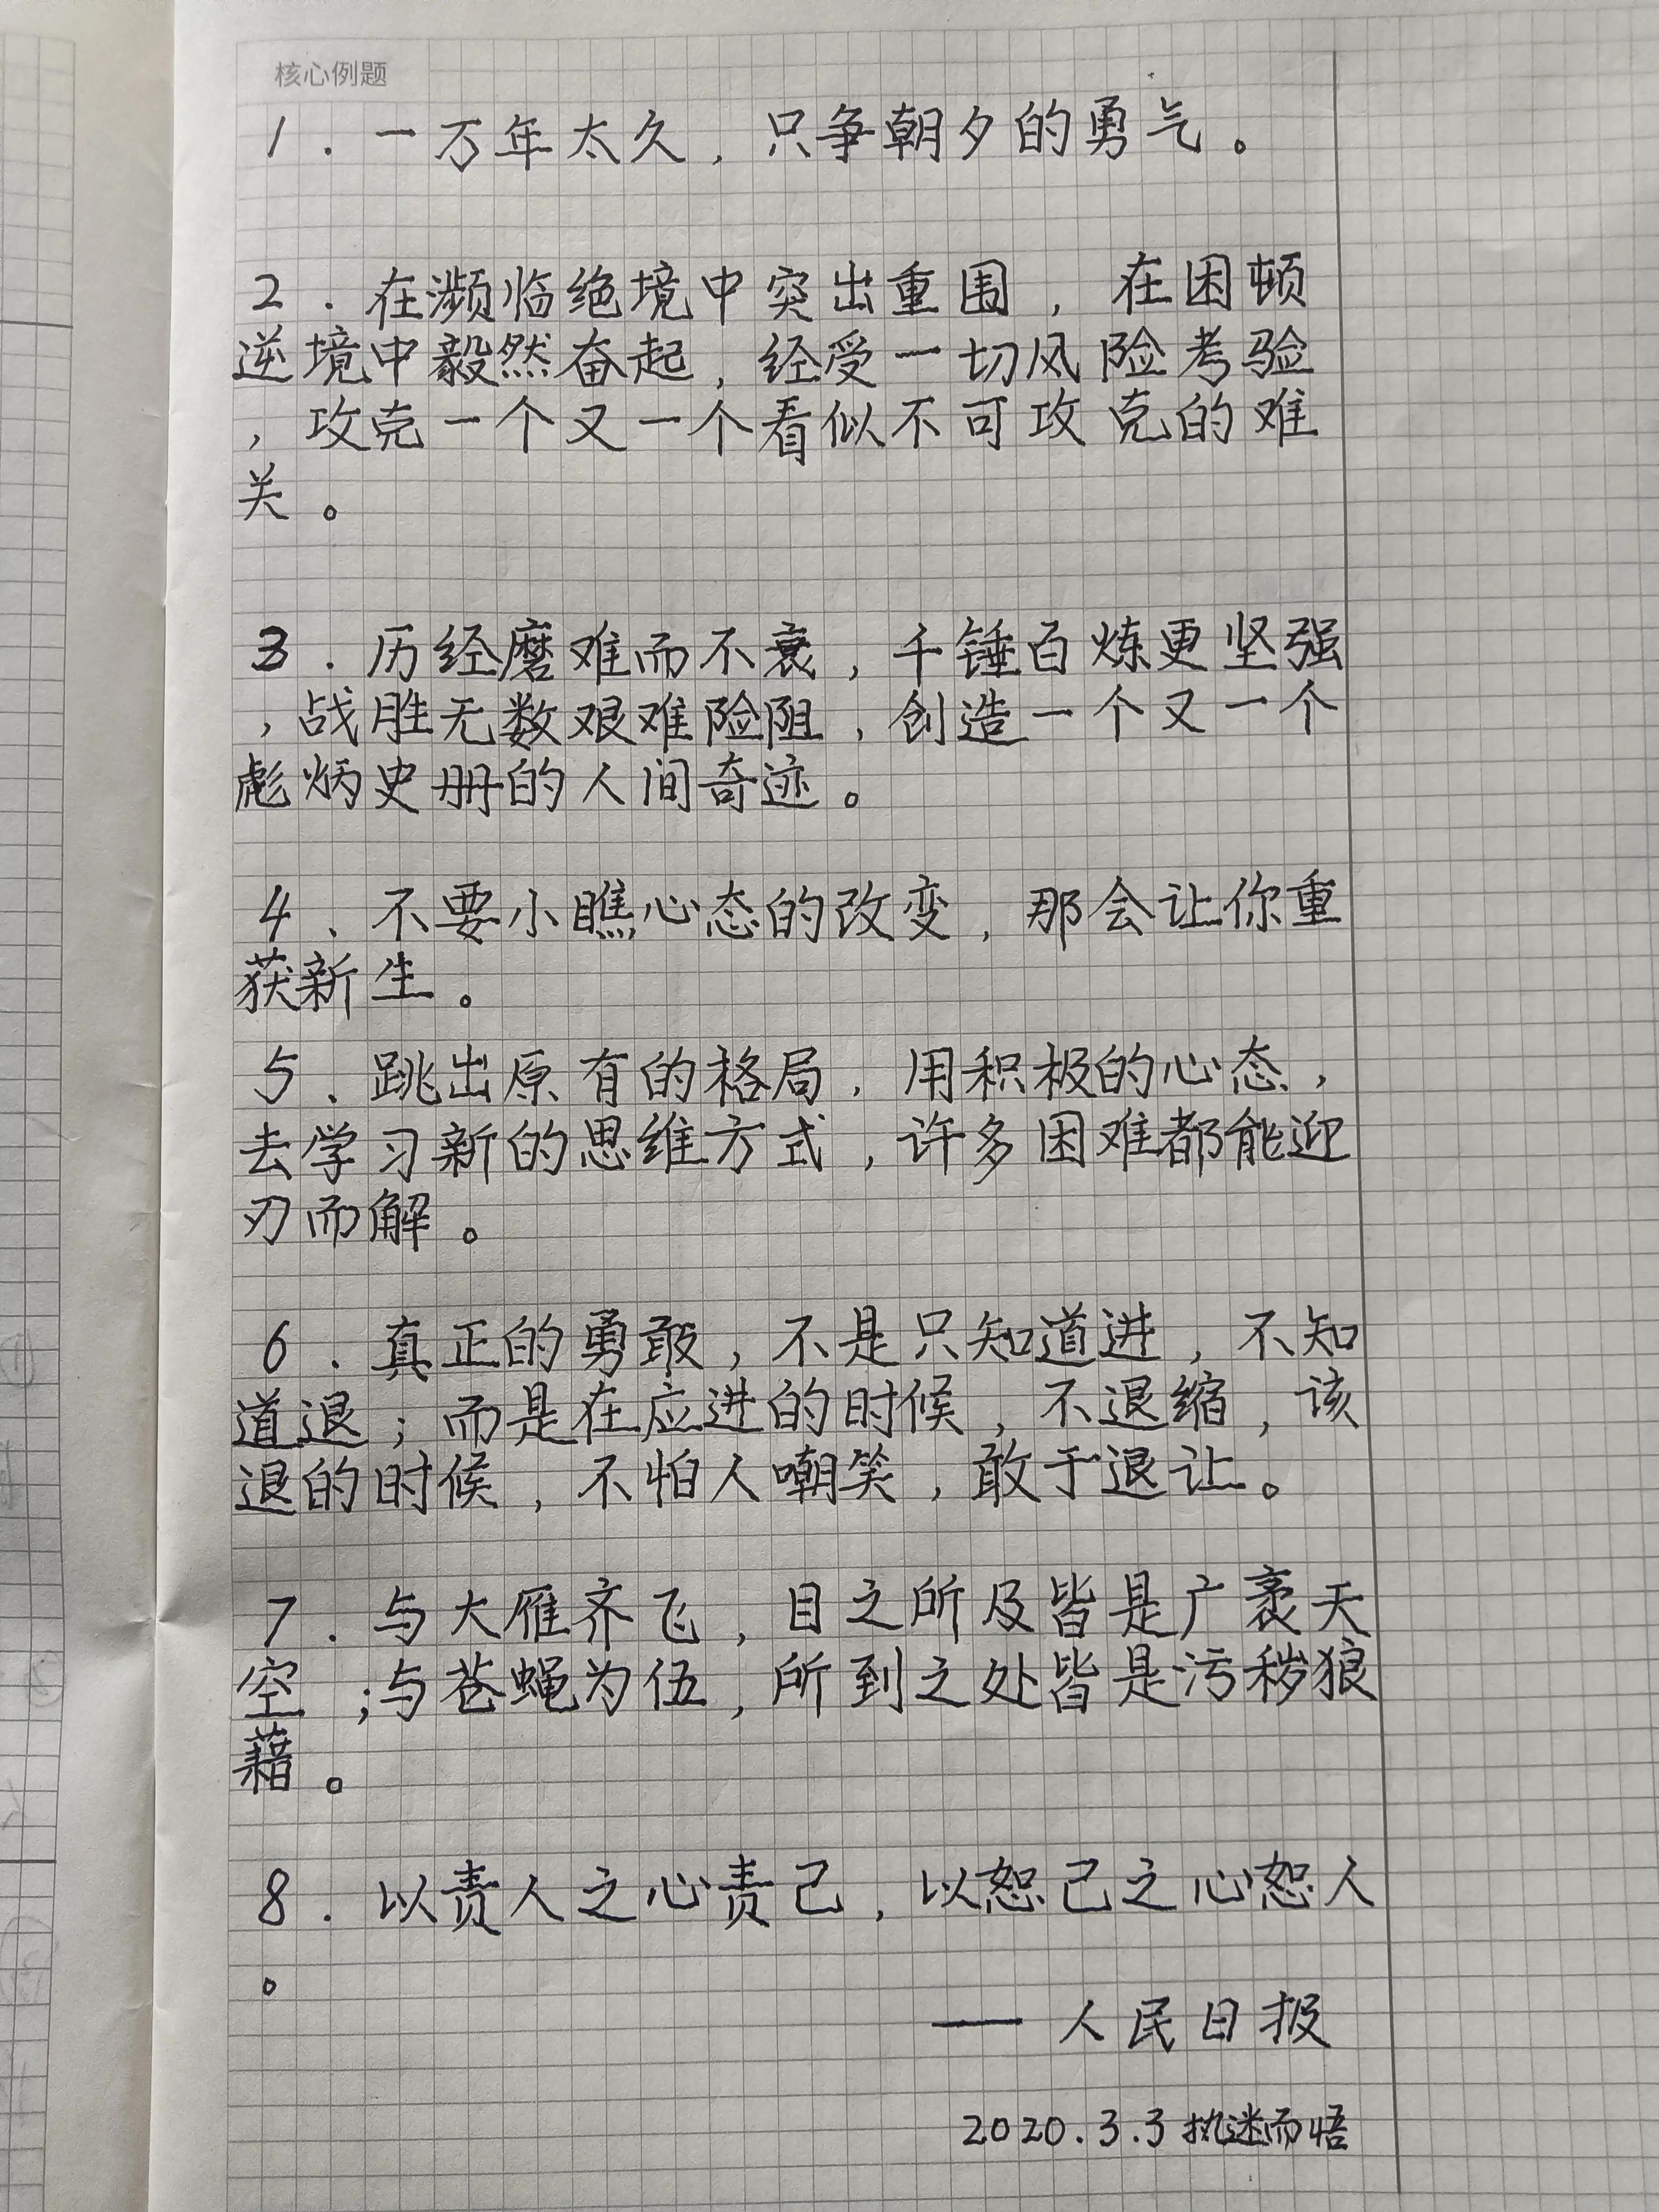 核心例题
1.一万年太久,只争朝夕的勇气。
2.在濒临绝境中突出重围,在困顿
逆境中毅然奋起,经受一切风险考验
,攻克一个又一个看似不可攻克的难
关。
3.历经磨难而不衰,千锤百炼更坚强
,战胜无数艰难险阻,创造一个又一个
彪炳史册的人间奇迹。
4、不要小瞧心态的改变,那会让你重
获新生。
5、跳出原有的格局,用积极的心态,
去学习新的思维方式,许多困难都能迎
刃而解。
6.真正的勇敢,不是只知道进,不知
道退;而是在应进的时候,不退缩,该
退的时候,不怕人嘲笑,敢于退让。
7.与大雁齐飞,目之所及皆是广袤天
空;与苍蝇为伍,所到之处皆是污秽狼
藉。
8.以责人之心责己,以恕己之心恕人
。
——人民日报
2020.3.3执迷而悟